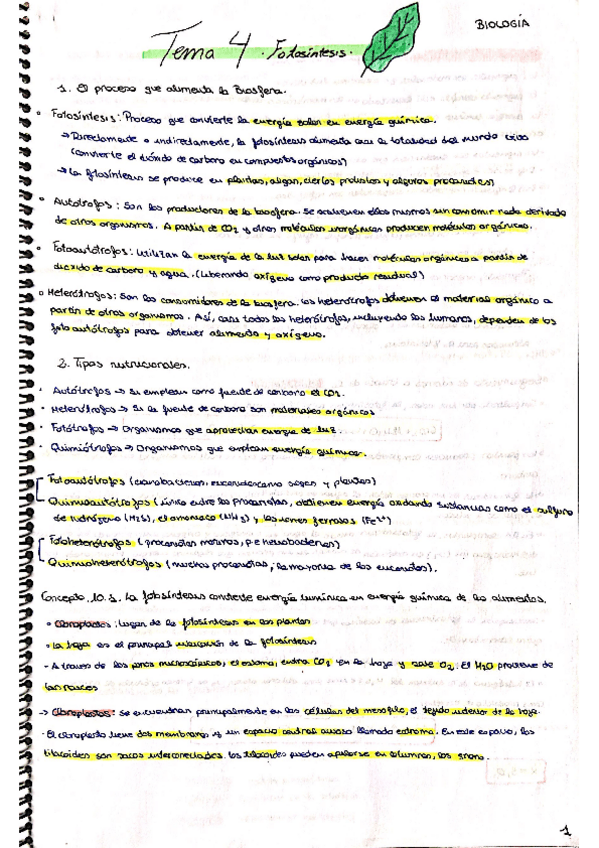 BIOLOGÍA
Tema 4 · Fotosíntesis ·
1. El proceso que alimenta la Biosfera.
Fotosíntesis: Proceso que convierte la energía solar en energía química.
→ Directamente o indirectamente, la fotosíntesis alimenta casi la totalidad del mundo vivo
(convierte el dióxido de carbono en compuestos orgánicos)
→ La fotosíntesis se produce en plantas, algas, ciertos protistas y algunos procariotas)
Autótrofos: Son los productores de la biosfera. Se sostienen ellos mismos sin comer nada derivado
de otros organismos. A partir de CO2 y otras moléculas inorgánicas producen moléculas orgánicas.
Fotoautótrofos: Utilizan la energía de la luz solar para hacer moléculas orgánicas a partir de
dióxido de carbono y agua. (Liberando oxígeno como producto residual)
Heterótrofos: Son los consumidores de la biosfera. Los heterótrofos obtienen el material orgánico a
partir de otros organismos. Así, casi todos los heterótrofos, incluyendo los humanos, dependen de los
fotoautótrofos para obtener alimento y oxígeno.
2. Tipos nutricionales.
Autótrofos → Si emplean como fuente de carbono el CO2.
Heterótrofos → Si la fuente de carbono son materiales orgánicos
Fotótrofos → Organismos que aprovechan energía de luz.
Quimiótrofos → Organismos que emplean energía química.
Fotoautótrofos (cianobacterias, algas y plantas)
Quimioautótrofos (único entre los procariotas, obtienen energía oxidando sustancias como el sulfuro
de hidrógeno (H2S), el amoniaco (NH3) y los iones ferrosos (Fe2+)
Fotoheterótrofos (procariotas marinos, p.e heliobacterias)
Quimioheterótrofos (muchos procariotas, la mayoría de los eucariotas).
Concepto 10.1. La fotosíntesis convierte energía lumínica en energía química de los alimentos.
Cloroplastos: lugar de la fotosíntesis en las plantas
La hoja es el principal de la fotosíntesis
- A través de los poros microscópicos, el estoma, entra CO2 en la hoja y sale O2. El H2O proviene de
las raíces
→ Cloroplastos: se encuentran principalmente en las células del mesófilo, el tejido interior de la hoja.
· El cloroplasto tiene dos membranas y un espacio central acuoso llamado estroma. En este espacio, los
tilacoides son sacos interconectados. Los tilacoides pueden apilarse en columnas, los grana.
1